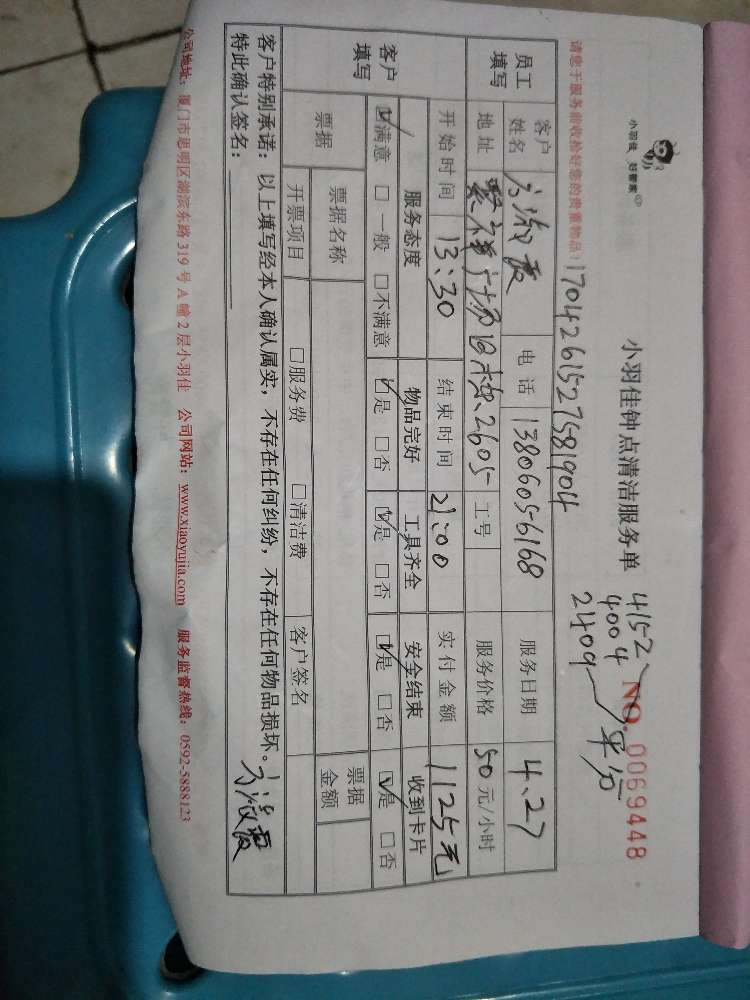 小羽佳 好管家
小羽佳钟点清洁服务单
4152
4004
2409
平分
NO. 0069448
请您于服务前收拾好您的贵重物品!
1704261527581904
员工填写
客户姓名
电话 13806056168
服务日期 4.27
地址
2605
工号
服务价格 50元/小时
开始时间 13:30
结束时间 21:00
实付金额 1125元
客户填写
服务态度 物品完好 工具齐全 安全结束 收到卡片
☑满意 □一般 □不满意 ☑是 □否 ☑是 □否 ☑是 □否 ☑是 □否
票据
票据名称
票据金额
开票项目 □服务费 □清洁费 客户签名
客户特别承诺:以上填写经本人确认属实,不存在任何纠纷,不存在任何物品损坏。
特此确认签名:
公司地址:厦门市思明区湖滨东路319号A幢2层小羽佳 公司网站:www.xiaoyujia.com 服务监督热线:0592-5888123